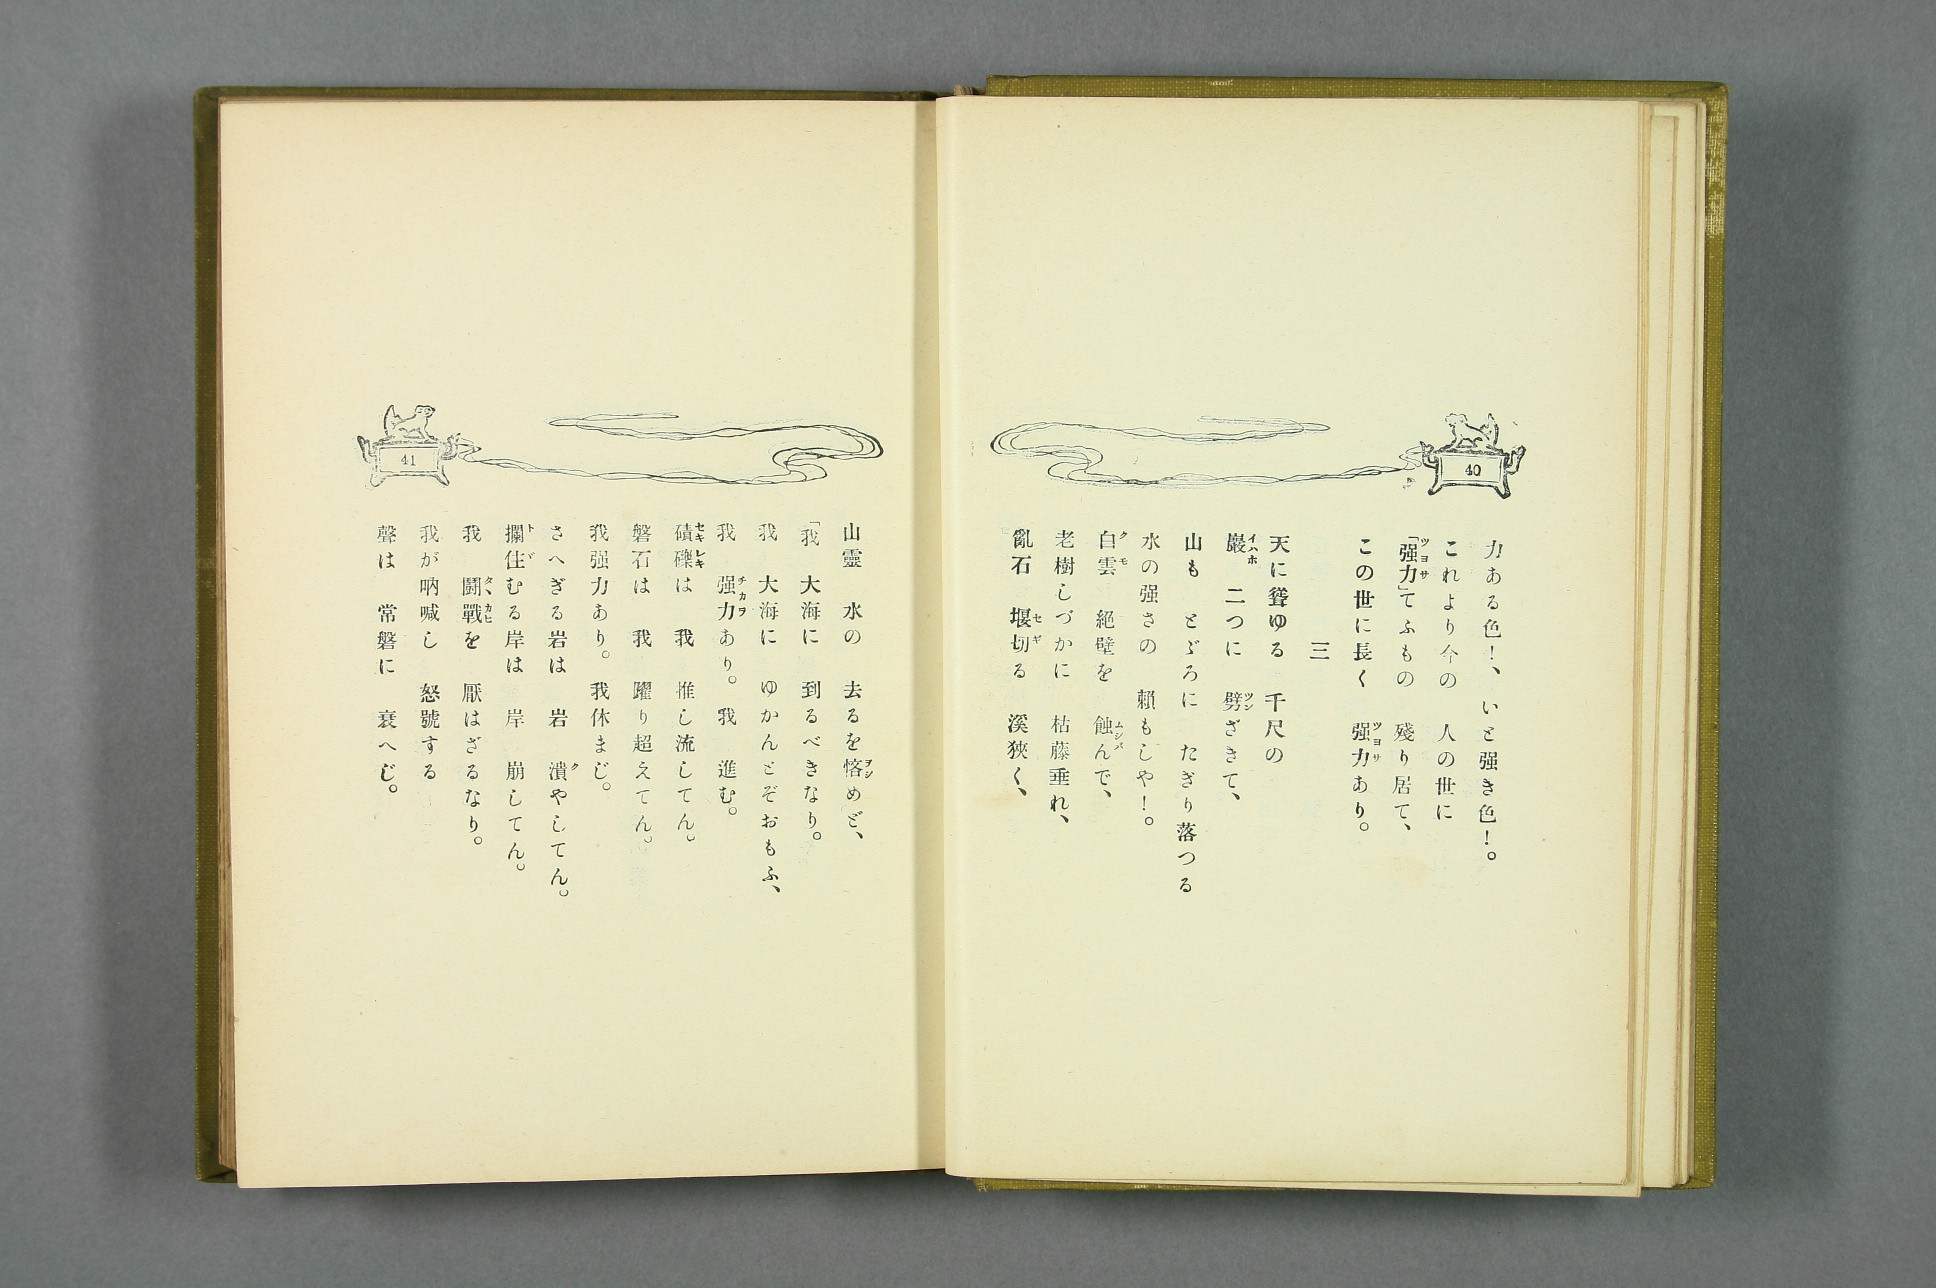 40
力ある色！、いと强き色！。
これより今の　人の世に
「强力」てふもの　殘り居て、
この世に長く　强力あり。
三
天に聳ゆる　千尺の
巖　二つに　劈ざきて、
山も　とゞろに　たぎり落つる
水の强さの　賴もしや！。
白雲　絕壁を　蝕んで、
老樹しづかに　枯藤垂れ、
亂石　堰切る　溪狹く、
41
山靈　水の　去るを悋めど、
「我　大海に　到るべきなり。
我　大海に　ゆかんとぞおもふ、
我　强力あり。我　進む。
磧礫は　我　推し流してん。
磐石は　我　躍り超えてん。
我强力あり。我休まじ。
さへぎる岩は　岩　潰やしてん。
攔住むる岸は　岸　崩してん。
我　鬪戰を　厭はざるなり。
我が吶喊し　怒號する
聲は　常磐に　衰へじ。